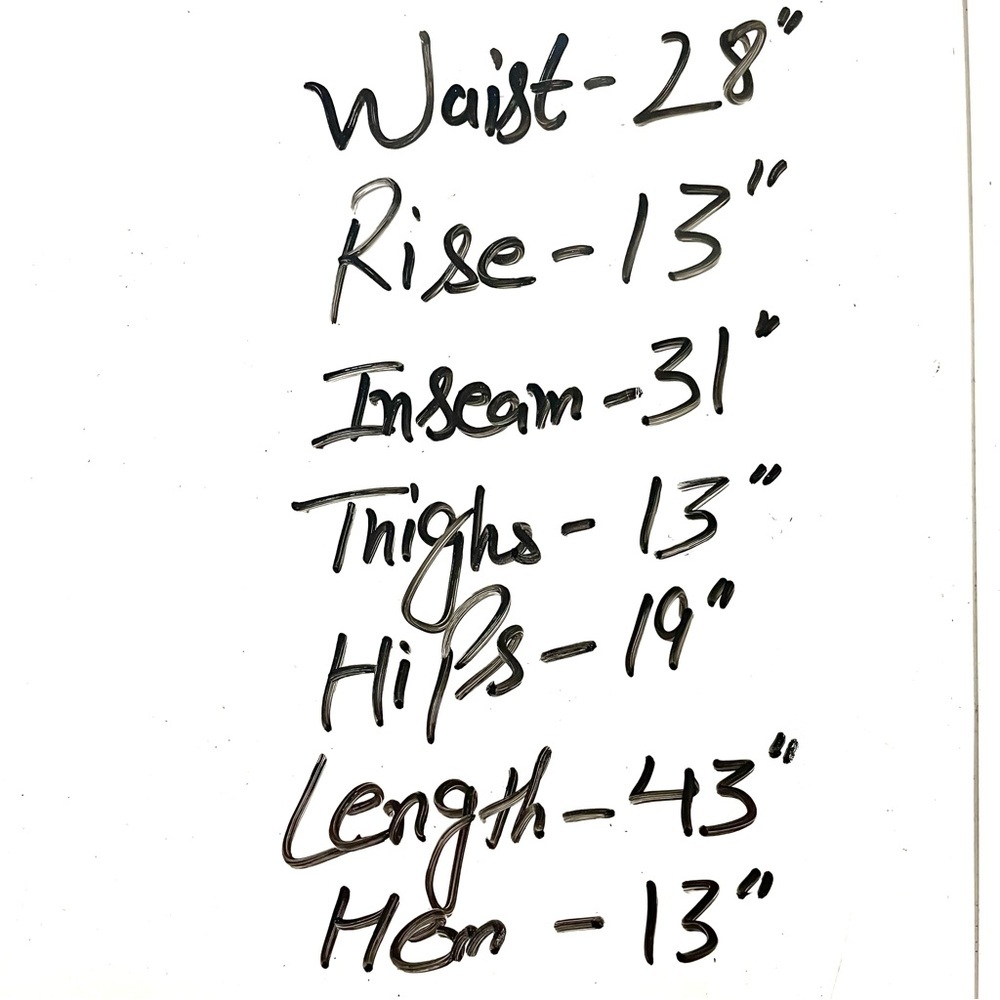 Waist - 28"
Rise - 13"
Inseam - 31"
Thighs - 13"
Hips - 19"
Length - 43"
Hem - 13"